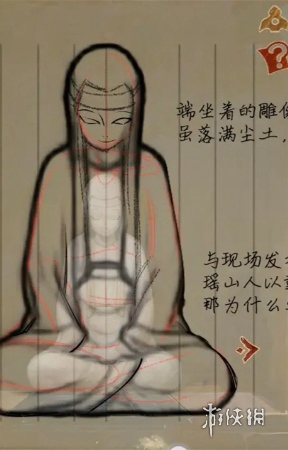 端坐着的雕
虽落满尘土，
与现场发
瑶山人以
那为什么
游侠网